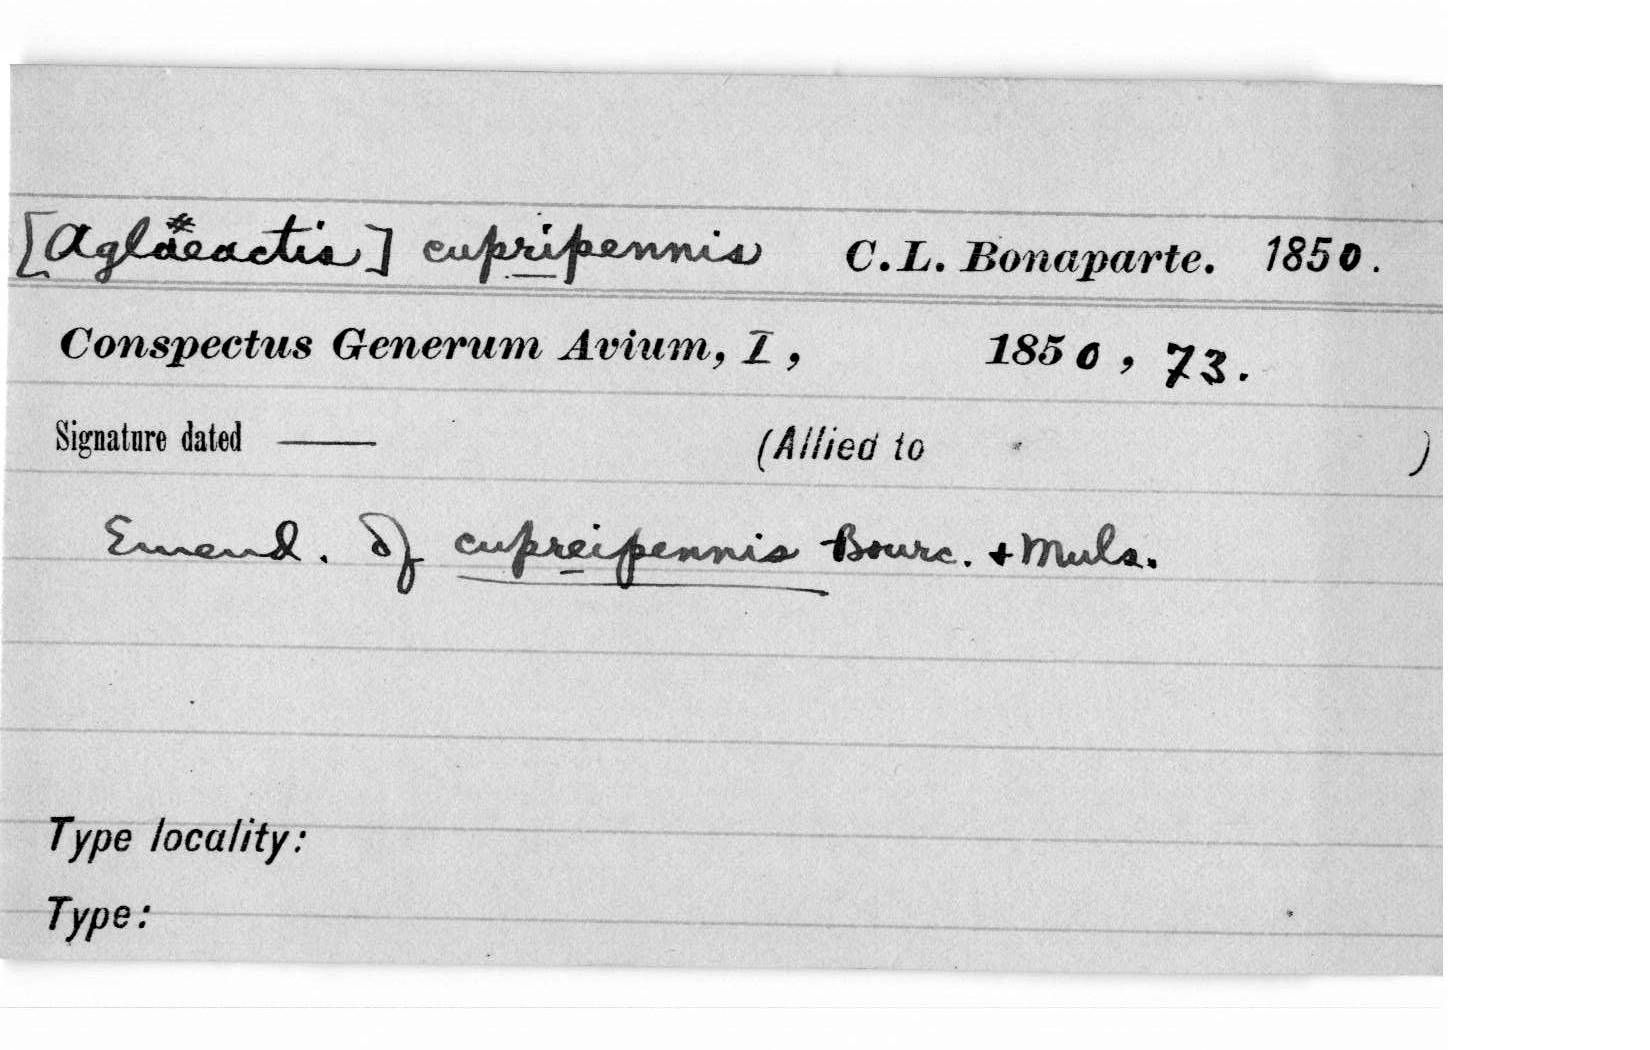 [Aglaeactis] cupripennis C.L. Bonaparte. 1850.
Conspectus Generum Avium, I, 1850, 73.
Signature dated —— (Allied to )
Emend. of cupreipennis Bourc. + Muls.
Type locality:
Type: